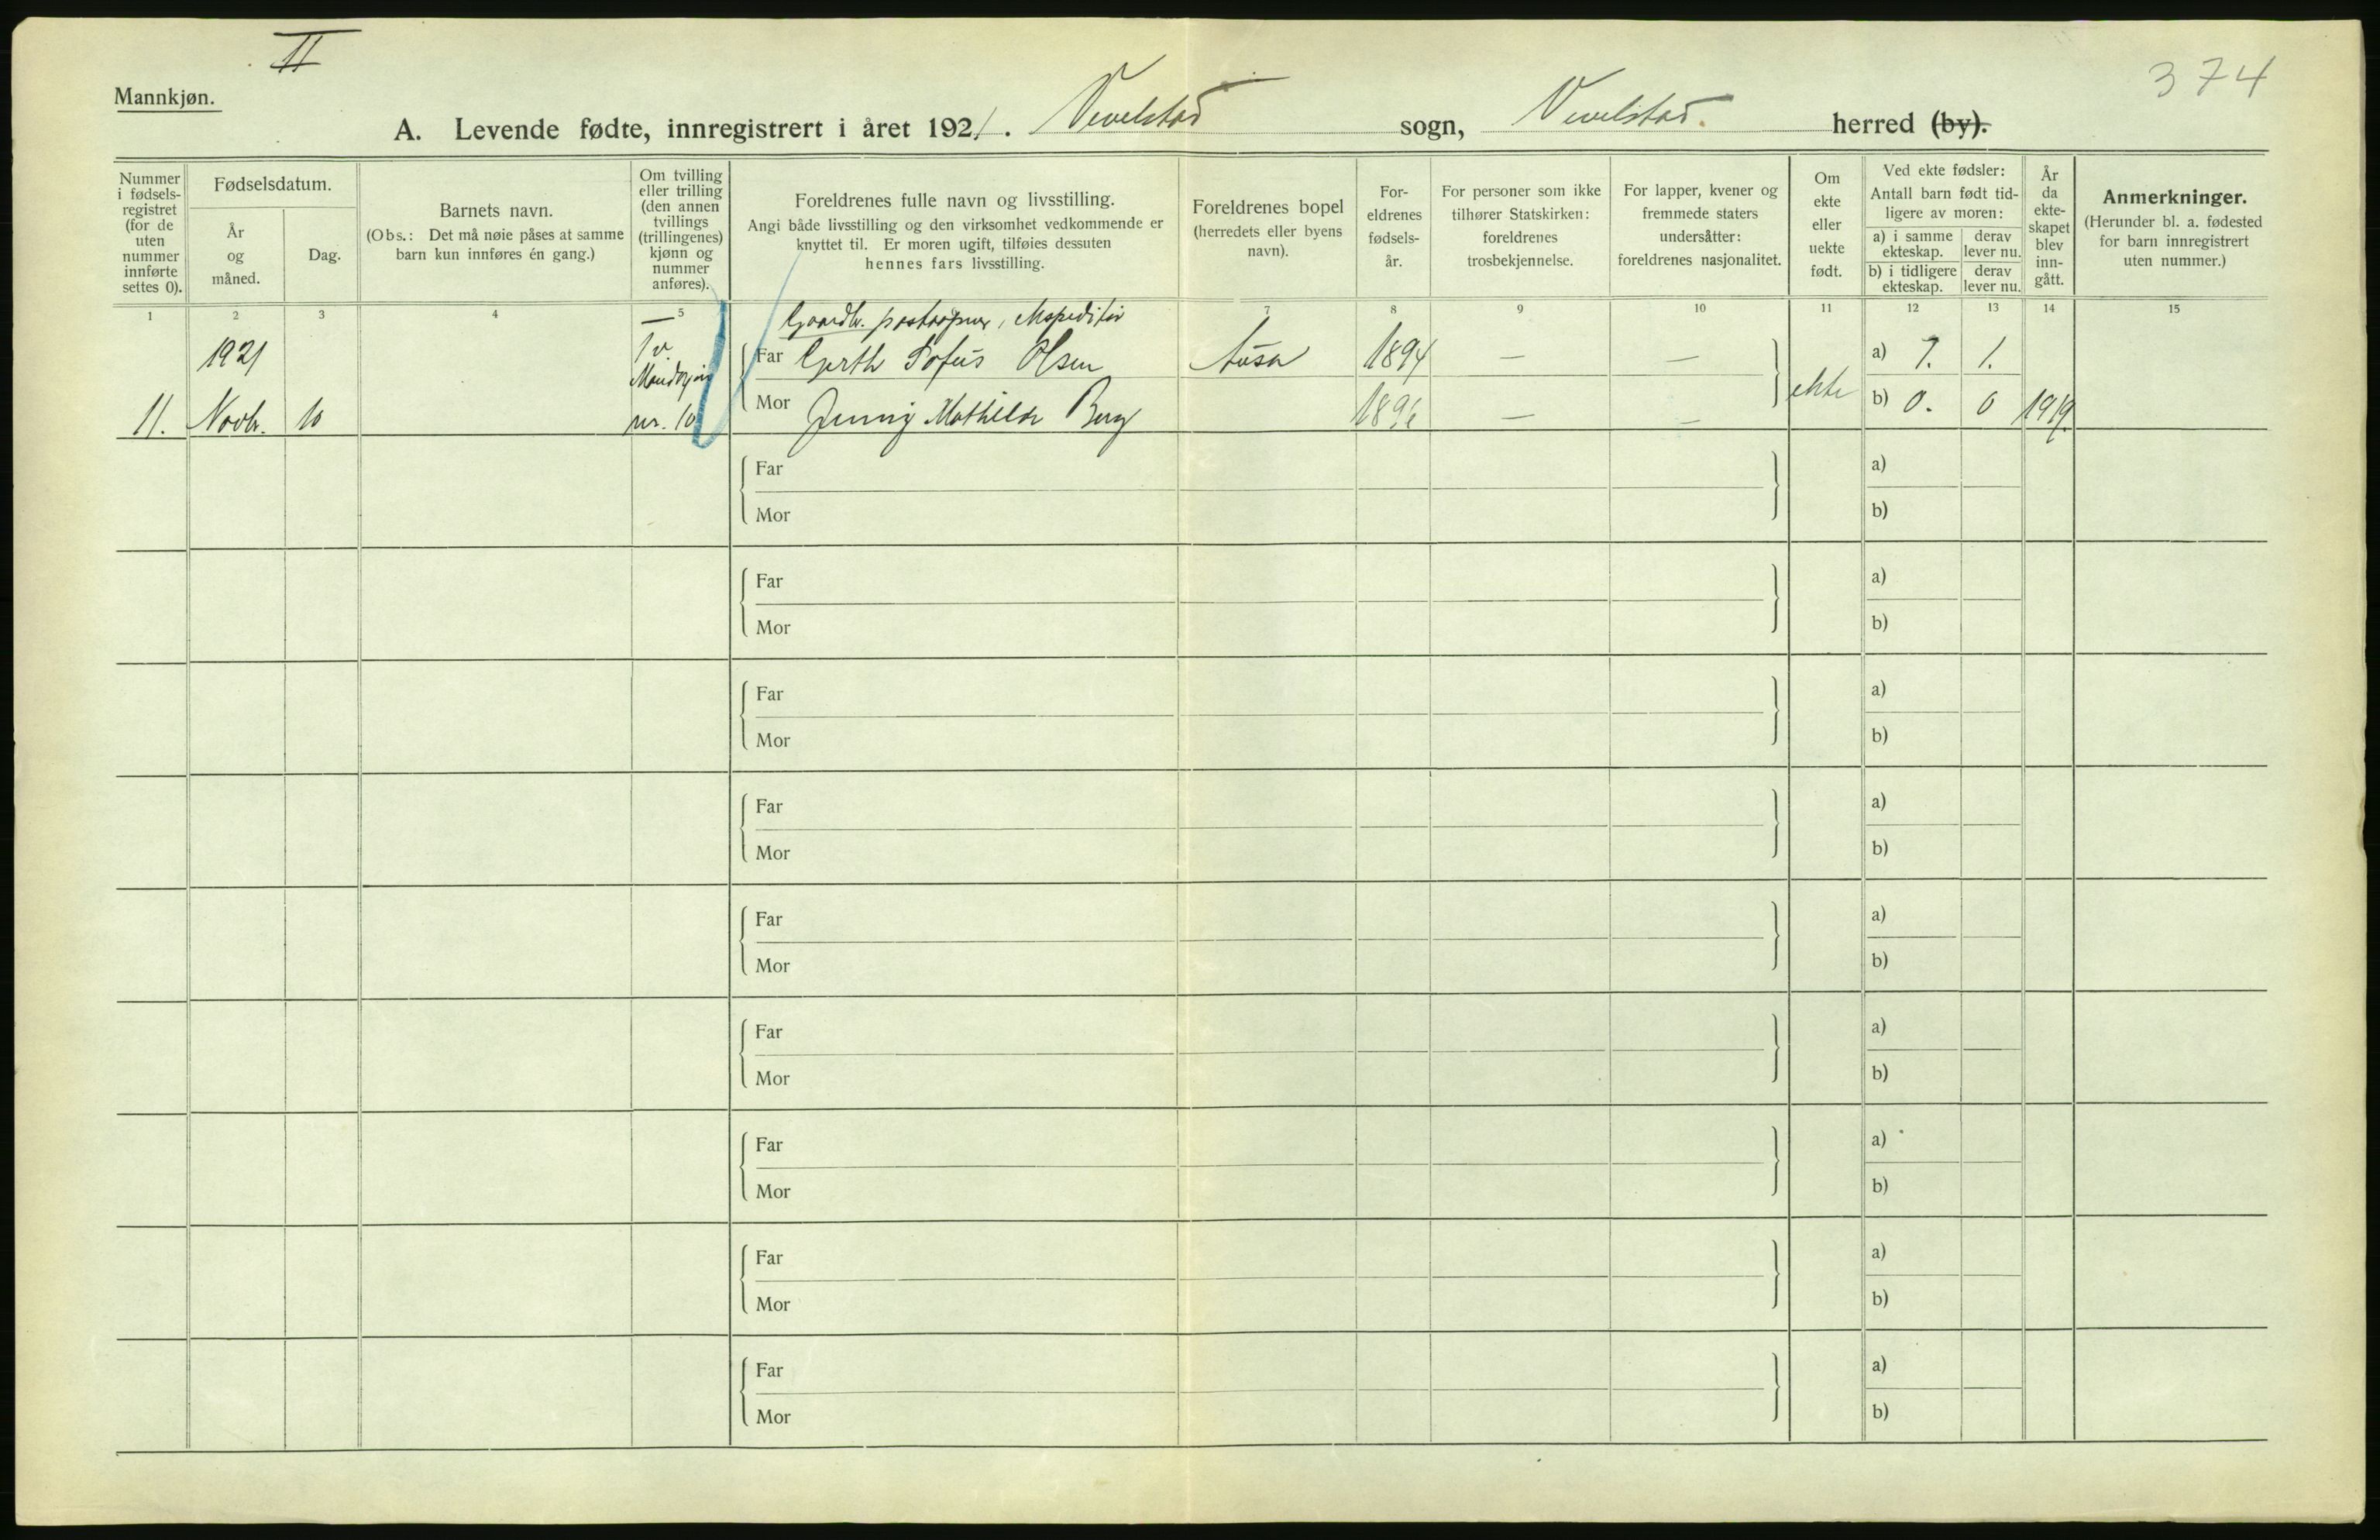 II
374
Mannkjøn.
A. Levende fødte, innregistrert i året 1921. Vevelstad sogn, Vevelstad. herred (by).
Nummer i fødsels-registret (for de uten nummer innførte settes 0).
Fødselsdatum.
År og måned.
Dag.
Barnets navn.
(Obs.: Det må nøie påses at samme barn kun innføres én gang.)
Om tvilling eller trilling (den annen tvillings (trillingenes) kjønn og nummer anføres).
Foreldrenes fulle navn og livsstilling.
Angi både livsstilling og den virksomhet vedkommende er knyttet til. Er moren ugift, tilføies dessuten hennes fars livsstilling.
Foreldrenes bopel (herredets eller byens navn).
For-eldrenes fødsels-år.
For personer som ikke tilhører Statskirken: foreldrenes trosbekjennelse.
For lapper, kvener og fremmede staters undersåtter: foreldrenes nasjonalitet.
Om ekte eller uekte født.
Ved ekte fødsler:
Antall barn født tid-ligere av moren:
a) i samme ekteskap.
derav lever nu.
b) i tidligere ekteskap.
derav lever nu.
År da ekte-skapet blev inn-gått.
Anmerkninger.
(Herunder bl. a. fødested for barn innregistrert uten nummer.)
1 2 3 4 5 7 8 9 10 11 12 13 14 15
Gaardbr. postaapner, Ekspeditør
1921 Tv. Far Gerth Sofus Olsen 1894 — — a) 1.
Mandkjøn
ekte
11. Novbr. 10 nr. 10 Mor Jenny Mathilde Berg 1896 — — b) 0. 0 1919.
Far a)
Mor b)
Far a)
Mor b)
Far a)
Mor b)
Far a)
Mor b)
Far a)
Mor b)
Far a)
Mor b)
Far a)
Mor b)
Far a)
Mor b)
Far a)
Mor b)